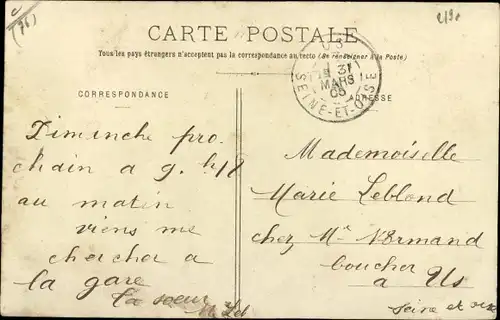 (76)
CARTE POSTALE
Tous les pays étrangers n'acceptent pas la correspondance au recto (Se renseigner à la Poste)
US
31
MARS
05
SEINE-ET-OISE
CORRESPONDANCE
ADRESSE
Dimenche pro
chain a 9. h 1/2
au matin
viens me
chercher a
la gare
Ta soeur
Mademoiselle
Marie Leblond
chez Mr Normand
boucher
a Us
Seine et